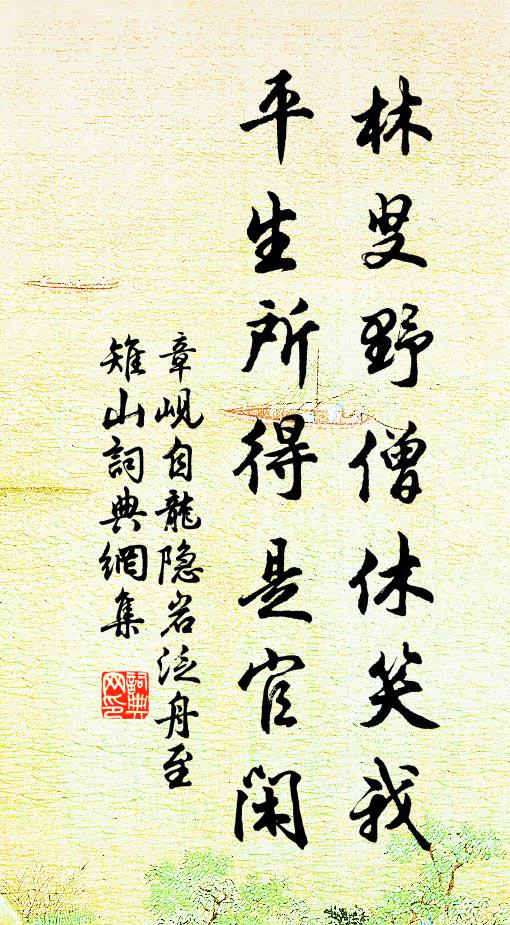 林叟野僧休笑我
平生所得是官閑
章岘自龍隐岩泛舟至
雉山詞典網集
詞典網印